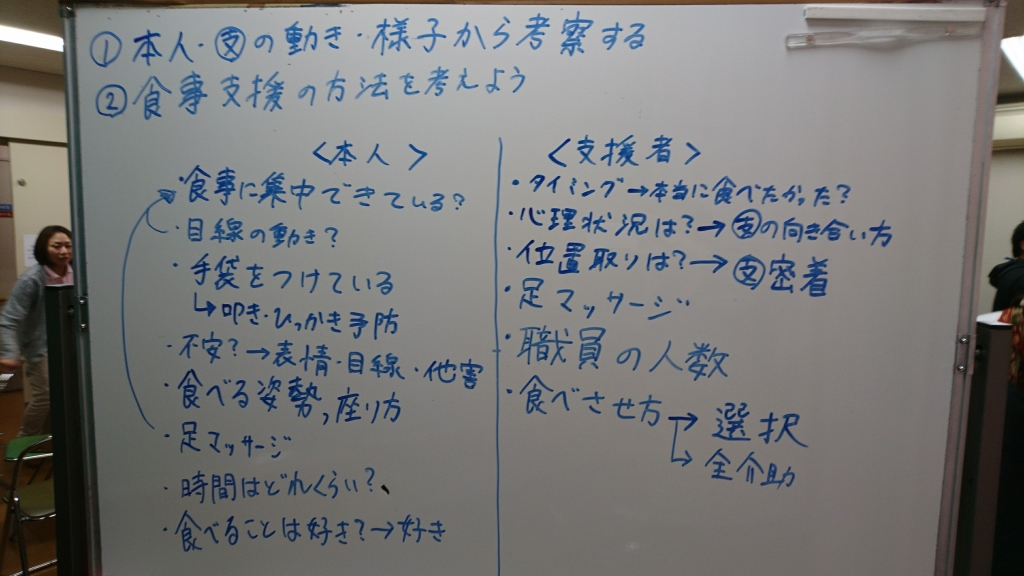 ① 本人・㋛の動き・様子から考察する
② 食事支援の方法を考えよう
<本人>
・食事に集中できている?
・目線の動き?
・手袋をつけている
↳叩き・ひっかき予防
・不安?→表情・目線・他害
・食べる姿勢,座り方
・足マッサージ
・時間はどれくらい?
・食べることは好き?→好き
<支援者>
・タイミング→本当に食べたかった?
・心理状況は?→支の向き合い方
・位置取りは?→支密着
・足マッサージ
・職員の人数
・食べさせ方→選択
↳全介助